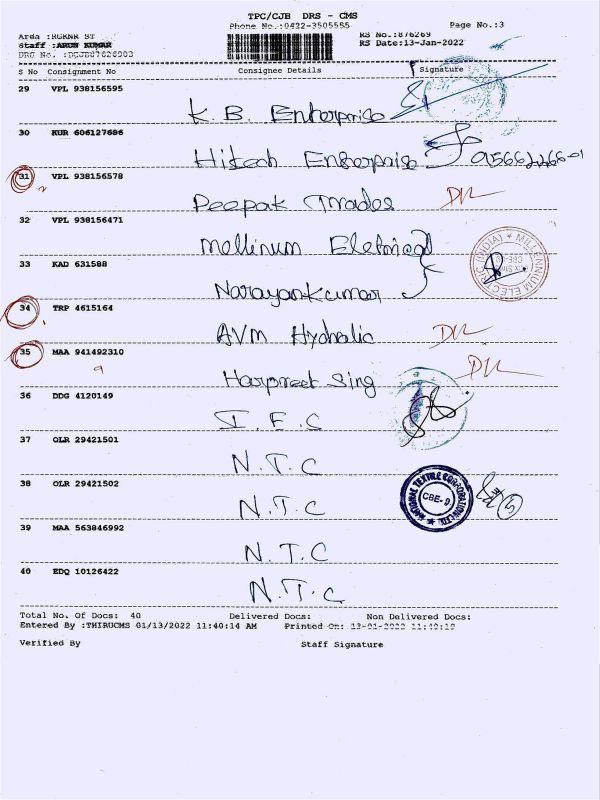 TPC/CJB DRS - CMS
Phone No.:0422-3505555 Page No.:3
Area :RGKNR ST RS No.:876269
Staff :ARUN KUMAR RS Date:13-Jan-2022
DRS No.
S No Consignment No Consignee Details Signature
29 VPL 938156595
K. B. Enterprise
30 KUR 606127686
Hitech Enterprise
31 VPL 938156578
Deepak Trades
32 VPL 938156471
Mellinum Eletrical
33 KAD 631588
Narayankumar
MILLENNIUM ELECTRIC (INDIA)
34 TRP 4615164
AVM Hydralic
35 MAA 941492310
Harpreet Sing
36 DDG 4120149
I. E. C
37 OLR 29421501
N. T. C
38 OLR 29421502
N. T. C
NATIONAL TEXTILE CORPORATION LTD.
CBE-9
5
39 MAA 563846992
N. T. C
40 EDQ 10126422
N. T. C
Total No. Of Docs: 40 Delivered Docs: Non Delivered Docs:
Entered By :THIRUCMS 01/13/2022 11:40:14 AM Printed On: 13-01-2022 11:40:19
Verified By Staff Signature